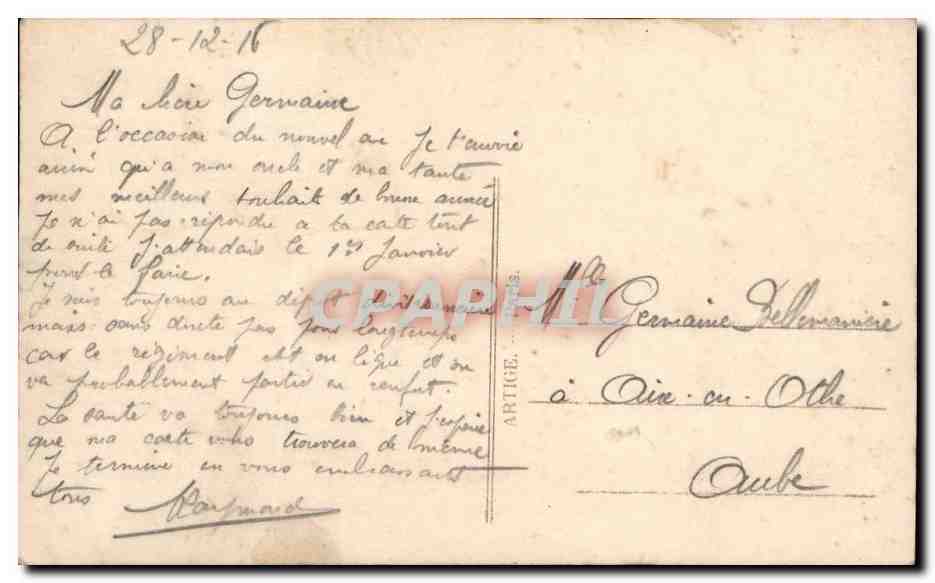 28-12-16
Ma chère Germaine
A l'occasion du nouvel an Je t'envoie
ainsi qu'a mon oncle et ma tante
mes meilleurs souhait de bonne année
Je n'ai pas répondu a ta carte tout
de suite J'attendais le 1er Janvier
pour le faire.
Je suis toujours au dépot divisionnaire
mais sans doute pas pour longtemps
car le régiment est en ligne et on
va probablement partir en renfort.
La santé va toujours bien et J'espère
que ma carte vous trouvera de même
Je termine en vous embrassant
tous
Raymond
ARTIGE.
CPAPHIL
Mlle Germaine
à Aix-en-Othe
Aube